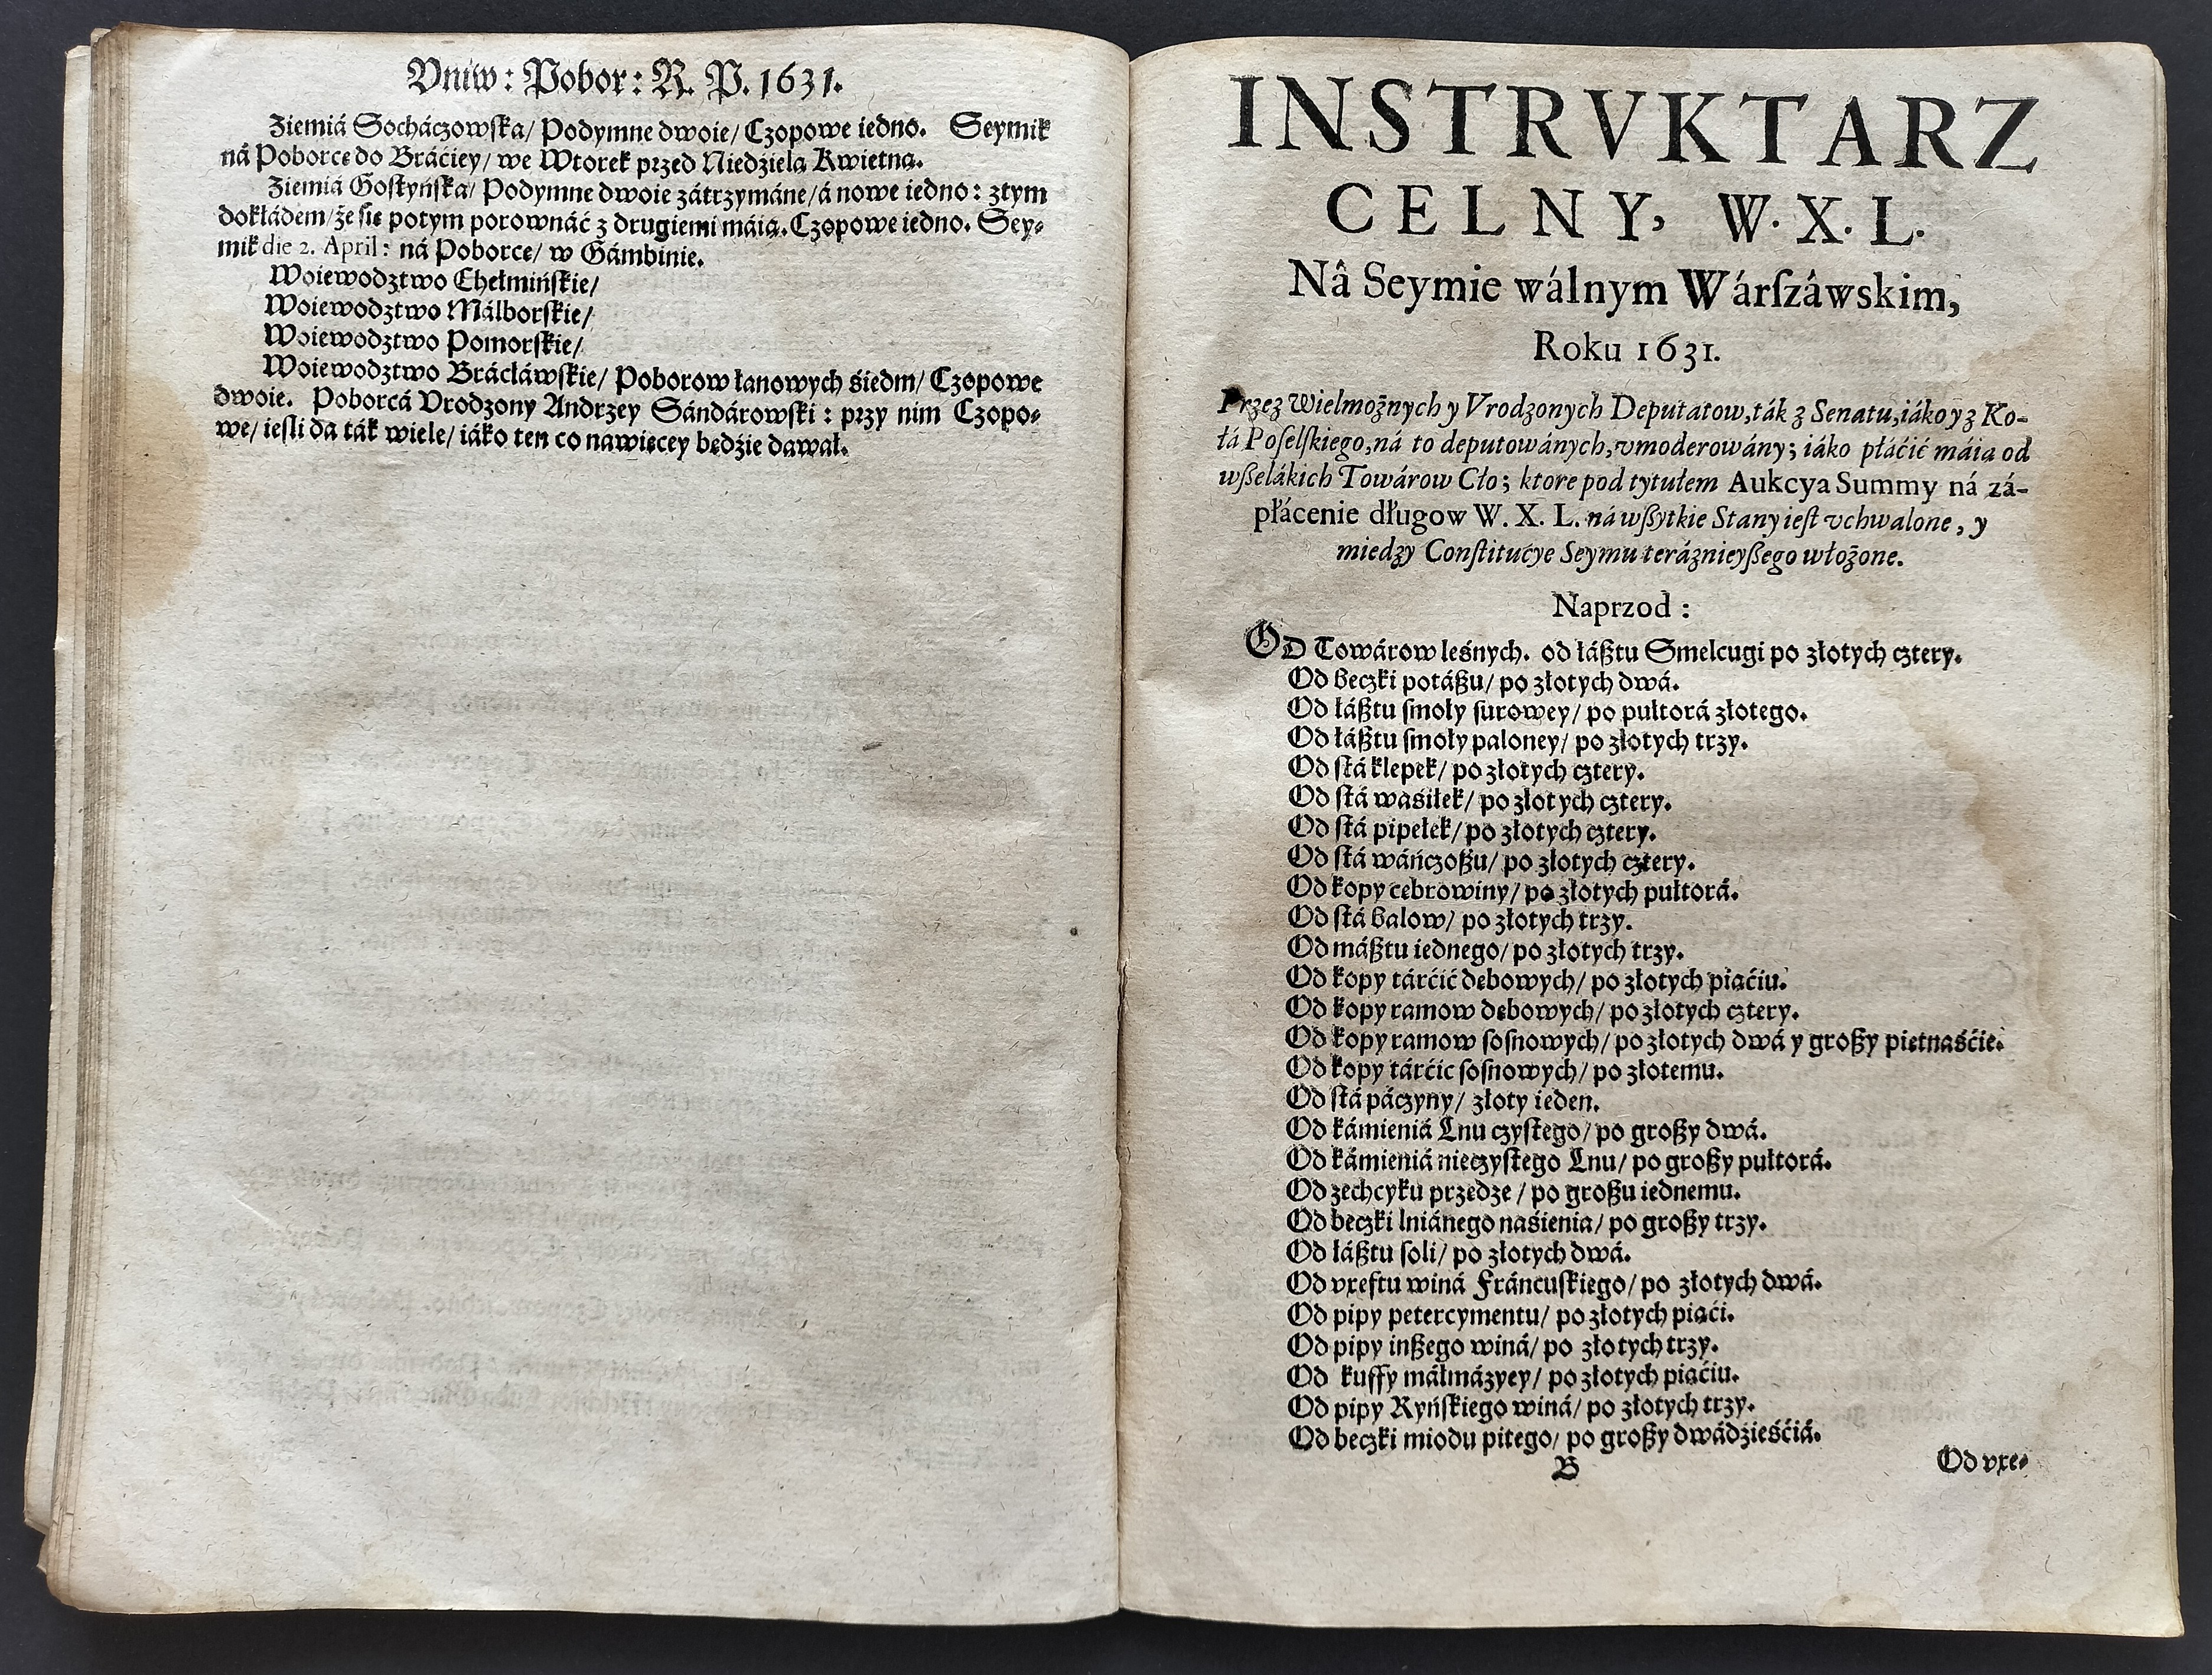 Vniw: Pobor: R. P. 1631.
Ziemiá Socháczowska/ Podymne dwoie/ Czopowe iedno. Seymik
ná Poborcę do Bráćiey/ we Wtorek przed Niedzielą Kwietną.
Ziemiá Gostyńska/ Podymne dwoie zátrzymáne/ á nowe iedno: z tym
dokłádem/ że się potym porownáć z drugiemi máią. Czopowe iedno. Sey-
mik die 2. April: ná Poborcę/ w Gámbinie.
Woiewodztwo Chełmińskie/
Woiewodztwo Málborskie/
Woiewodztwo Pomorskie/
Woiewodztwo Brácláwskie/ Poborow łanowych śiedm/ Czopowe
dwoie. Poborcá Vrodzony Andrzey Sándárowski: przy nim Czopo-
we/ iesli da ták wiele/ iáko ten co nawięcey będźie dawał.
INSTRVKTARZ
CELNY, W. X. L.
Nâ Seymie wálnym Wárſzâwskim,
Roku 1631.
Przez Wielmożnych y Vrodzonych Deputatow, ták z Senatu, iáko y z Ko-
łá Poſelſkiego, ná to deputowánych, vmoderowány; iáko płáćić máią od
wßelákich Towárow Cło; ktore pod tytułem Aukcya Summy ná zá-
płácenie długow W. X. L. ná wßytkie Stany ieſt vchwalone, y
miedzy Conſtitućye Seymu teráznieyßego włożone.
Naprzod:
OD Towárow leśnych. od łáßtu Smelcugi po złotych cztery.
Od beczki potáßu/ po złotych dwá.
Od łáßtu ſmoły ſurowey/ po pułtorá złotego.
Od łáßtu ſmoły paloney/ po złotych trzy.
Od ſtá klepek/ po złotych cztery.
Od ſtá waśiłek/ po złotych cztery.
Od ſtá pipełek/ po złotych cztery.
Od ſtá wáńczoßu/ po złotych cztery.
Od kopy cebrowiny/ po złotych pułtorá.
Od ſtá balow/ po złotych trzy.
Od máßtu iednego/ po złotych trzy.
Od kopy tárćić dębowych/ po złotych piąćiu.
Od kopy ramow dębowych/ po złotych cztery.
Od kopy ramow ſoſnowych/ po złotych dwá y großy piętnaśćie.
Od kopy tárćic ſoſnowych/ po złotemu.
Od ſtá páczyny/ złoty ieden.
Od kámieniá Lnu czyſtego/ po großy dwá.
Od kámieniá nieczyſtego Lnu/ po großy pułtorá.
Od zechcyku przędze/ po großu iednemu.
Od beczki lniánego naśienia/ po großy trzy.
Od łáßtu ſoli/ po złotych dwá.
Od vxeftu winá Fráncuſkiego/ po złotych dwá.
Od pipy petercymentu/ po złotych piąći.
Od pipy inßego winá/ po złotych trzy.
Od kuffy máłmázyey/ po złotych piąćiu.
Od pipy Ryńſkiego winá/ po złotych trzy.
Od beczki miodu pitego/ po großy dwádźieśćiá.
B
Od vxe-